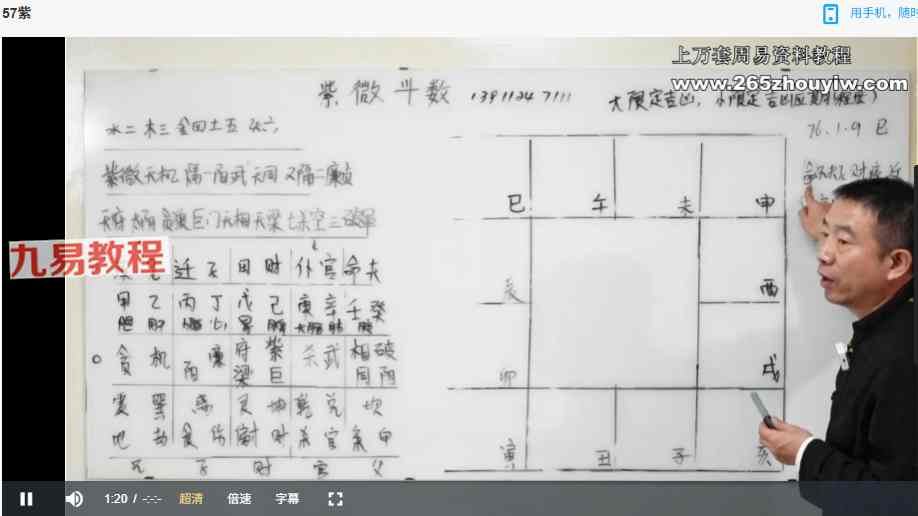 57紫
用手机，随时
上万套周易资料教程
www.265zhouyiw.com
紫微斗数 13911247111 大限定吉凶，小限定吉凶应期(程度)
76.1.9 巳
水二木三金四土五火六
紫微天机隔一阳武天同又隔二廉贞
天府太阴贪狼巨门天相天梁七杀空三破军
九易教程
迁 田 财 仆 官 命 夫
甲 乙 丙 丁 戊 己 庚 辛 壬 癸
胆 肝 心 胃 脾 大肠 肺
贪 机 阳 廉 府 紫 杀 武 相 破
梁 巨 同 阴
震 巽 离 艮 坤 乾 兑 坎
地 劫 食 伤 财 杀 官
兄 子 财 官 父
巳 午 未 申
辰 酉
卯 戌
寅 丑 子 亥
1:20 / -:-:- 超清 倍速 字幕